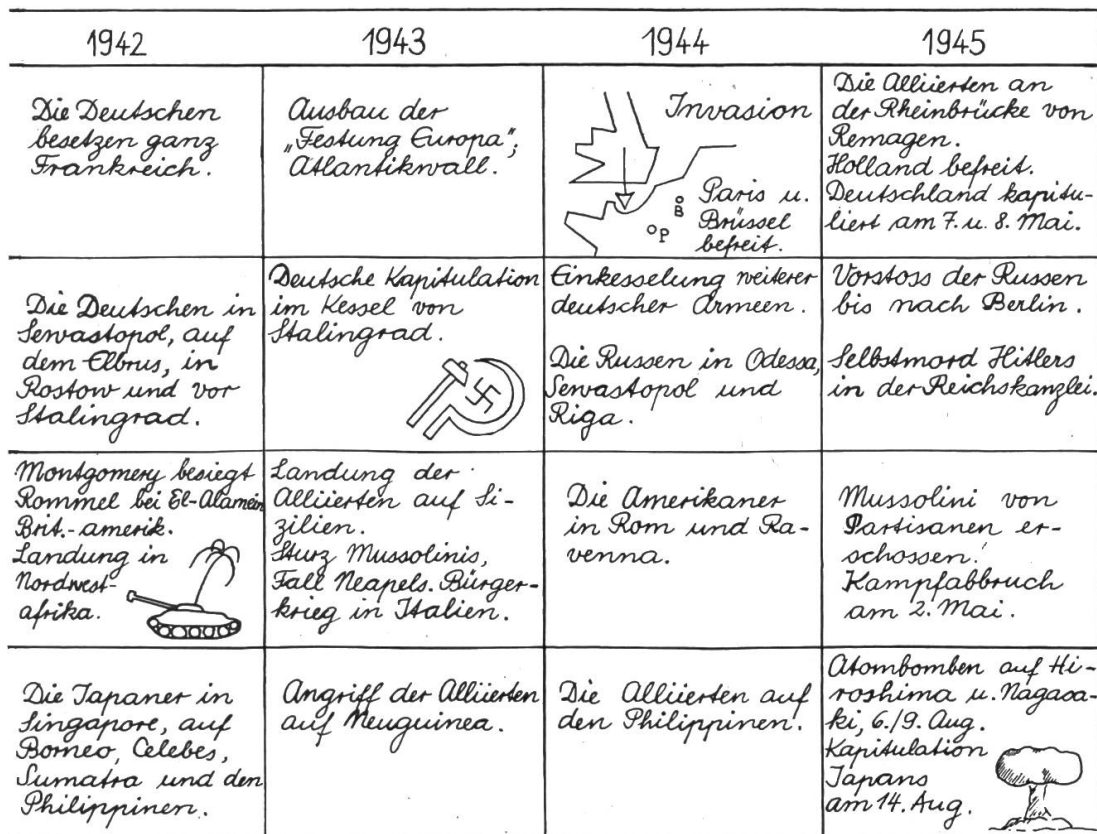 1942
1943
1944
1945
Die Deutschen
besetzen ganz
Frankreich.
Ausbau der
„Festung Europa“,
Atlantikwall.
Invasion
Paris u.
Brüssel
befreit.
B
P
Die Alliierten an
der Rheinbrücke von
Remagen.
Holland befreit.
Deutschland kapitu-
liert am 7. u. 8. Mai.
Die Deutschen in
Sewastopol, auf
dem Elbrus, in
Rostow und vor
Stalingrad.
Deutsche Kapitulation
im Kessel von
Stalingrad.
Einkesselung weiterer
deutscher Armeen.
Die Russen in Odessa,
Sewastopol und
Riga.
Vorstoss der Russen
bis nach Berlin.
Selbstmord Hitlers
in der Reichskanzlei.
Montgomery besiegt
Rommel bei El-Alamein
Brit.-amerik.
Landung in
Nordwest-
afrika.
Landung der
Alliierten auf Si-
zilien.
Sturz Mussolinis,
Fall Neapels. Bürger-
krieg in Italien.
Die Amerikaner
in Rom und Ra-
venna.
Mussolini von
Partisanen er-
schossen.
Kampfabbruch
am 2. Mai.
Die Japaner in
Singapore, auf
Borneo, Celebes,
Sumatra und den
Philippinen.
Angriff der Alliierten
auf Neuguinea.
Die Alliierten auf
den Philippinen.
Atombomben auf Hi-
roshima u. Nagasa-
ki, 6./9. Aug.
Kapitulation
Japans
am 14. Aug.